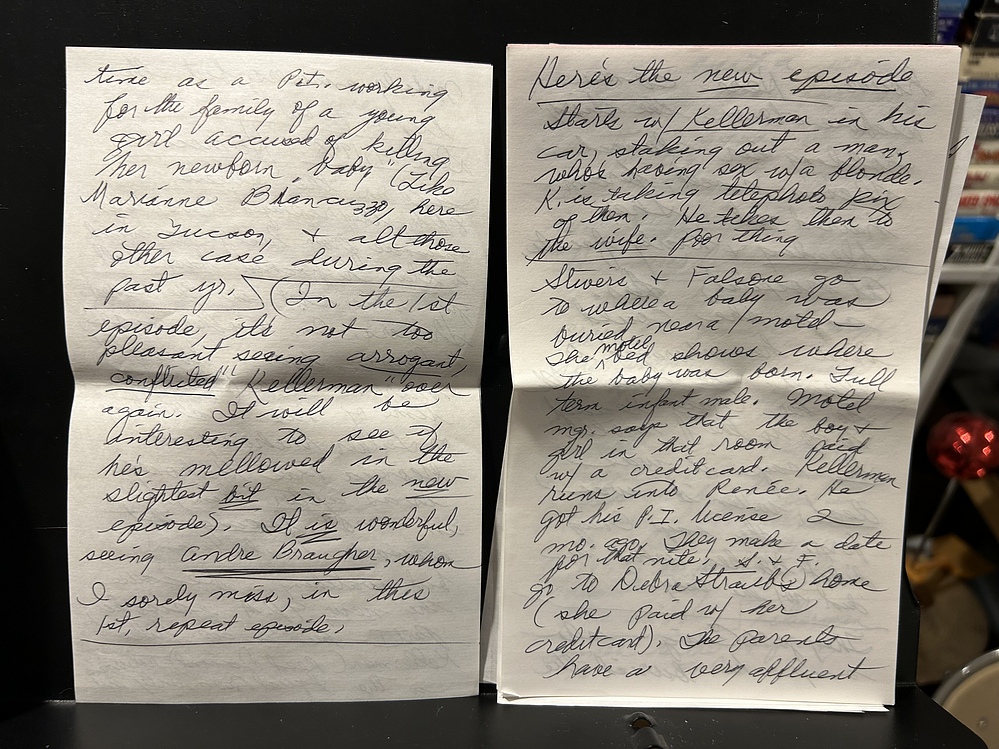 time as a P.I. working
for the family of a young
girl accused of killing
her newborn baby "(Like
Marianne Biancuzzo, here
in Tucson, + all those
other case during the
past yr.) (In the 1st
episode, it's not too
pleasant seeing arrogant,
conflicted" Kellerman "over
again. It will be
interesting to see if
he's mellowed in the
slightest bit in the new
episode). It is wonderful,
seeing Andre Braugher, whom
I sorely miss, in this
1st, repeat episode.
Here's the new episode
Starts w/ Kellerman in his
car, staking out a man,
who's having sex w/a blonde.
K. is taking telephoto pix
of them. He takes them to
the wife. Poor thing
Stivers + Falsone go
to where a baby was
buried near a motel—
She motel bed shows where
the baby was born. Full
term infant male. Motel
mgr. says that the boy +
girl in that room paid
w/ a credit card. Kellerman
runs into Renée. He
got his P.I. license 2
mo. ago. They make a date
for that nite. S. + F.
go to Debra Straub's home
(she paid w/ her
credit card). The parents
have a very affluent